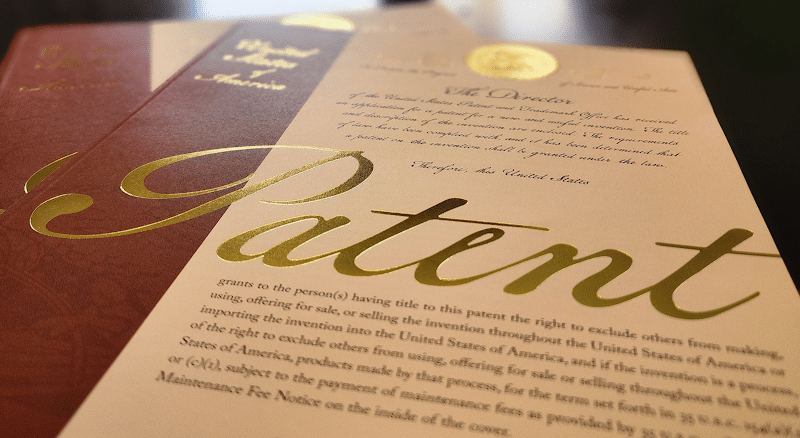 United
States
of
America
The Director
of the United States Patent and Trademark Office has received
an application for a patent for a new and useful invention. The title
and description of the invention are enclosed. The requirements
of law have been complied with, and it has been determined that
a patent on the invention shall be granted under the law.
Therefore, this United States
Patent
grants to the person(s) having title to this patent the right to exclude others from making,
using, offering for sale, or selling the invention throughout the United States of America or
importing the invention into the United States of America, and if the invention is a process,
of the right to exclude others from using, offering for sale or selling throughout the United
States of America, products made by that process, for the term set forth in 35 U.S.C.
or (c)(1), subject to the payment of maintenance fees as provided by 35 U.S.C.
Maintenance Fee Notice on the inside of the cover.